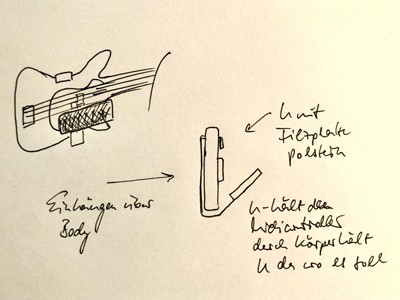 U mit
Filzplatte
polstern
Einhängen über
Body
U-hält den
Midicontroller
durch Körper hält
U da wo er soll